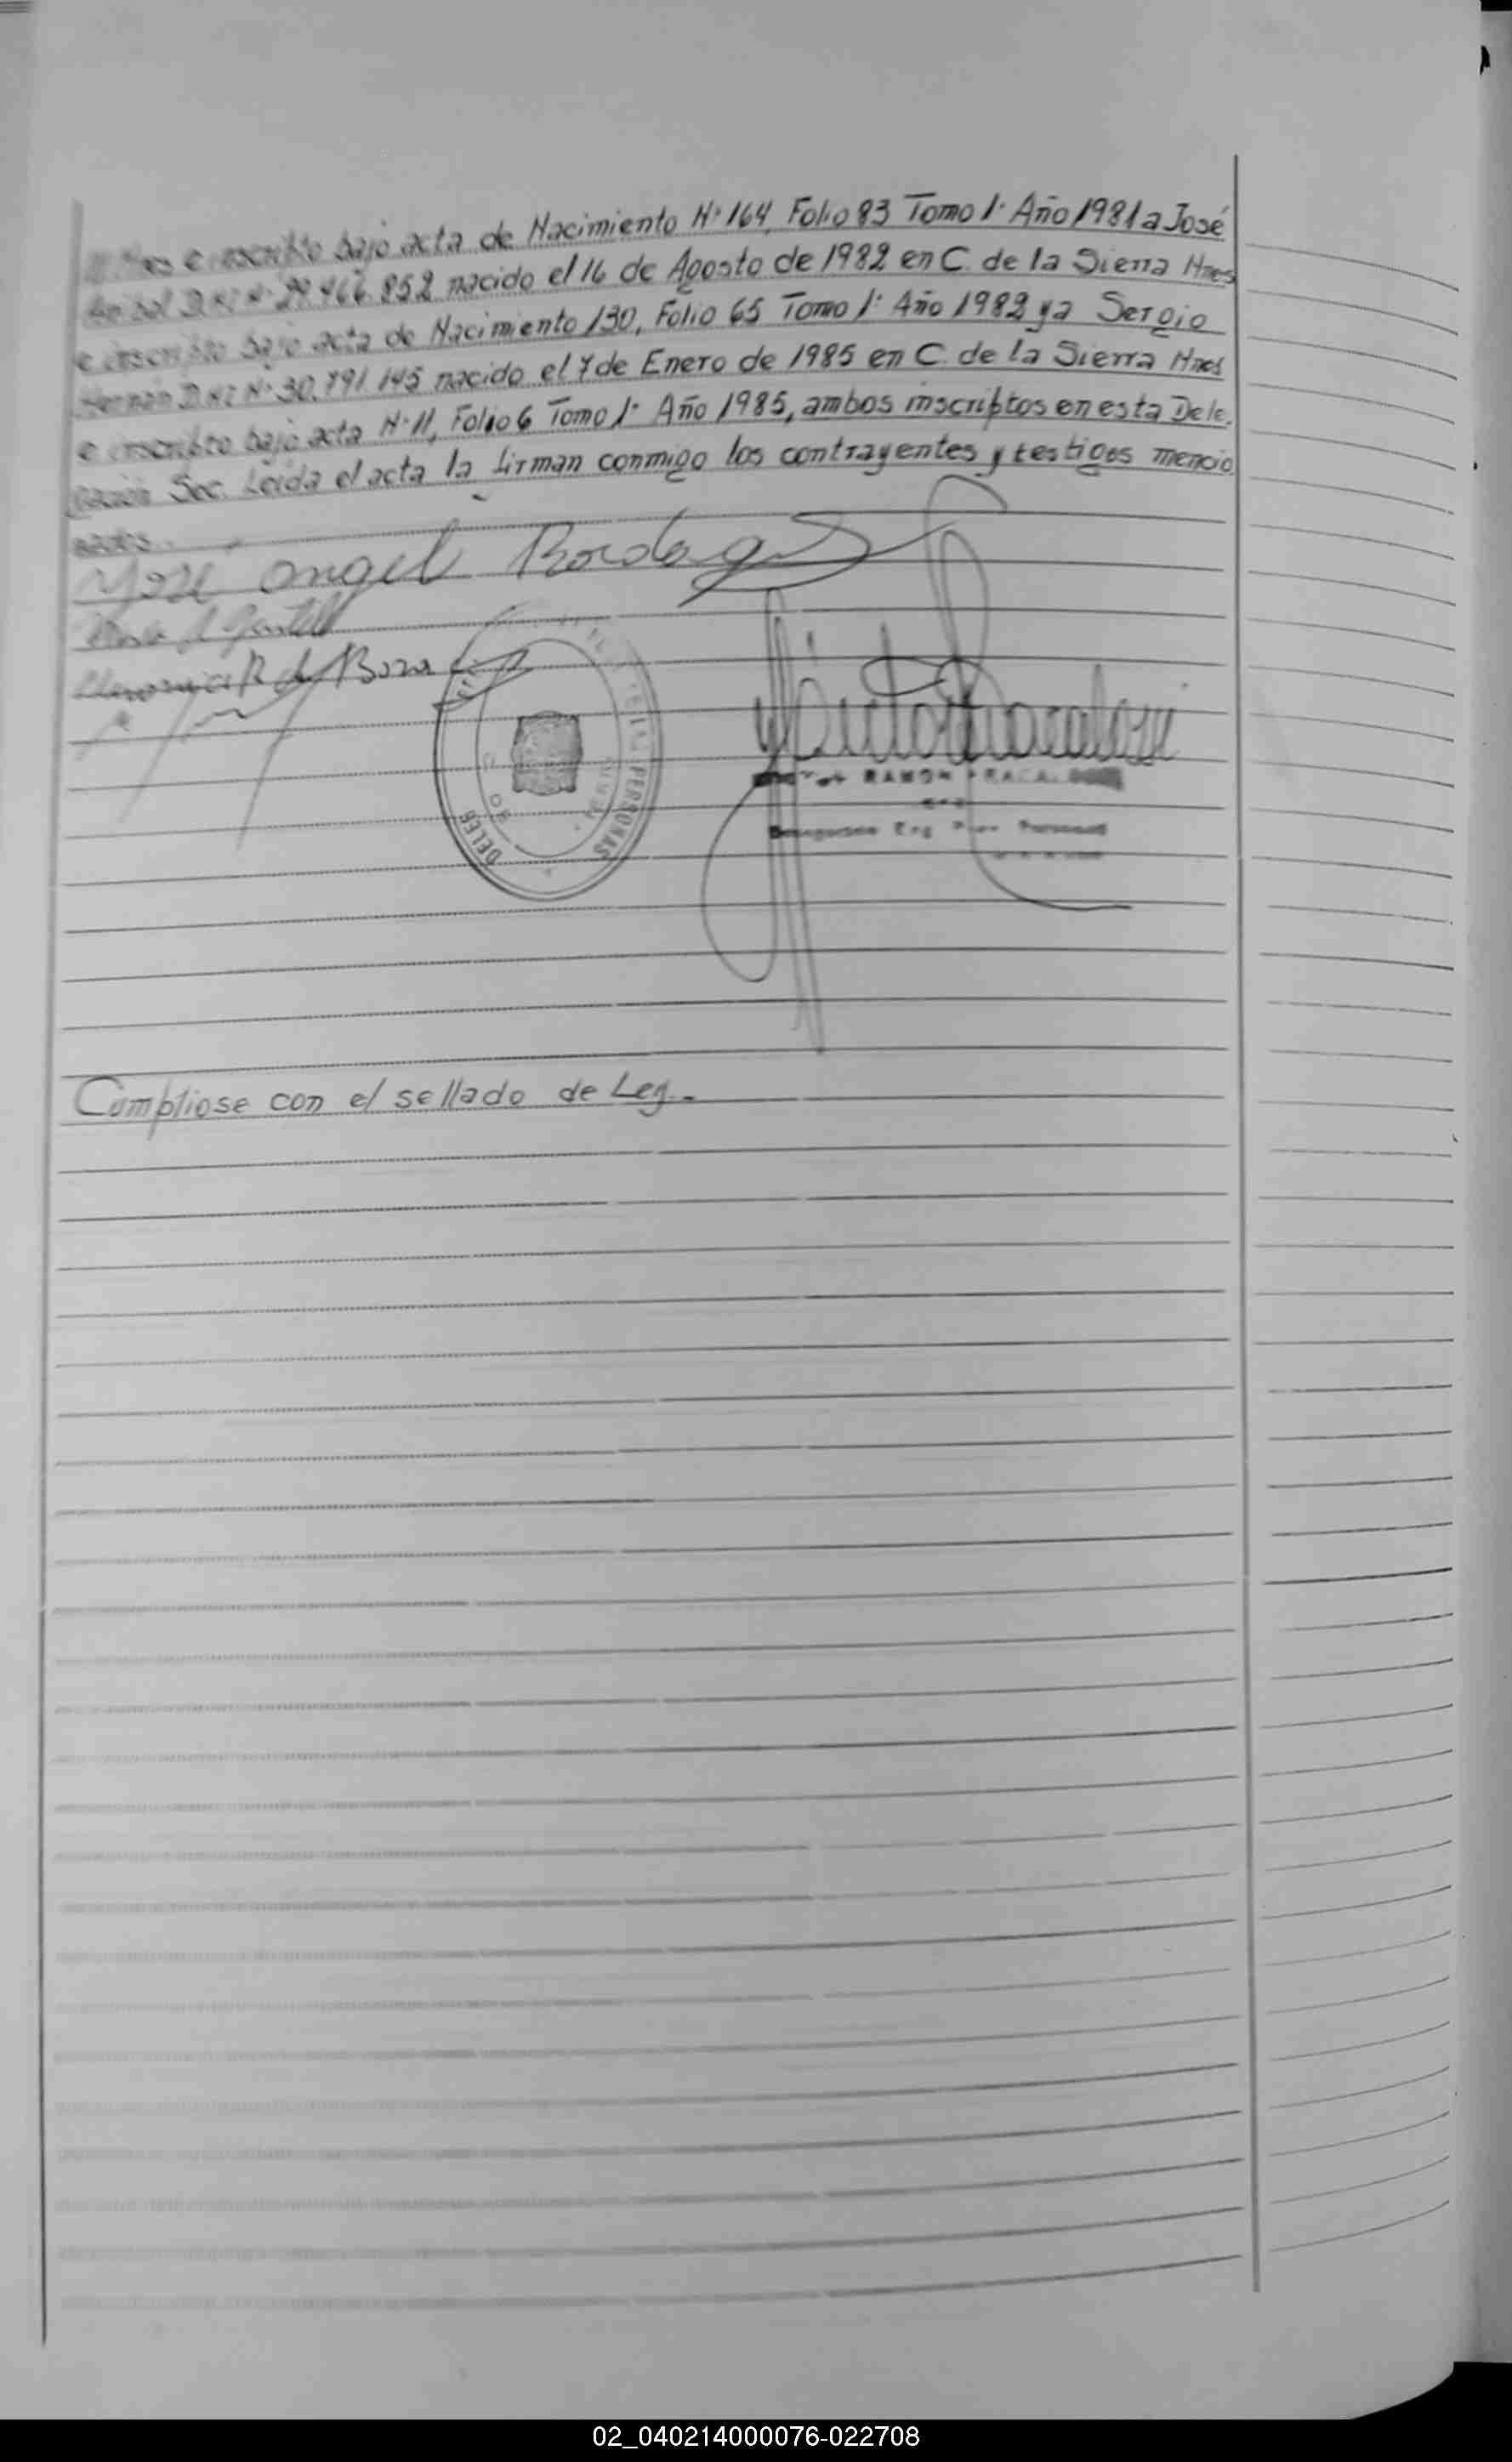 e inscripto bajo acta de Nacimiento Nº 164, Folio 83 Tomo 1º Año 1981 a José
Anibal D.N.I Nº 29.466.852 nacido el 16 de Agosto de 1982 en C. de la Sierra Mnes
e inscripto bajo acta de Nacimiento 130, Folio 65 Tomo 1º Año 1982 y a Sergio
Hernán D.N.I Nº 30.791.145 nacido el 7 de Enero de 1985 en C. de la Sierra Mnes
e inscripto bajo acta Nº 11, Folio 6 Tomo 1º Año 1985, ambos inscriptos en esta Dele.
gación Sec. Leída el acta la firman conmigo los contrayentes y testigos mencio
nados.
José Angel
RAMON
DELEG
DE
PERSONAS
Cumpliose con el sellado de Ley.-
02_040214000076-022708